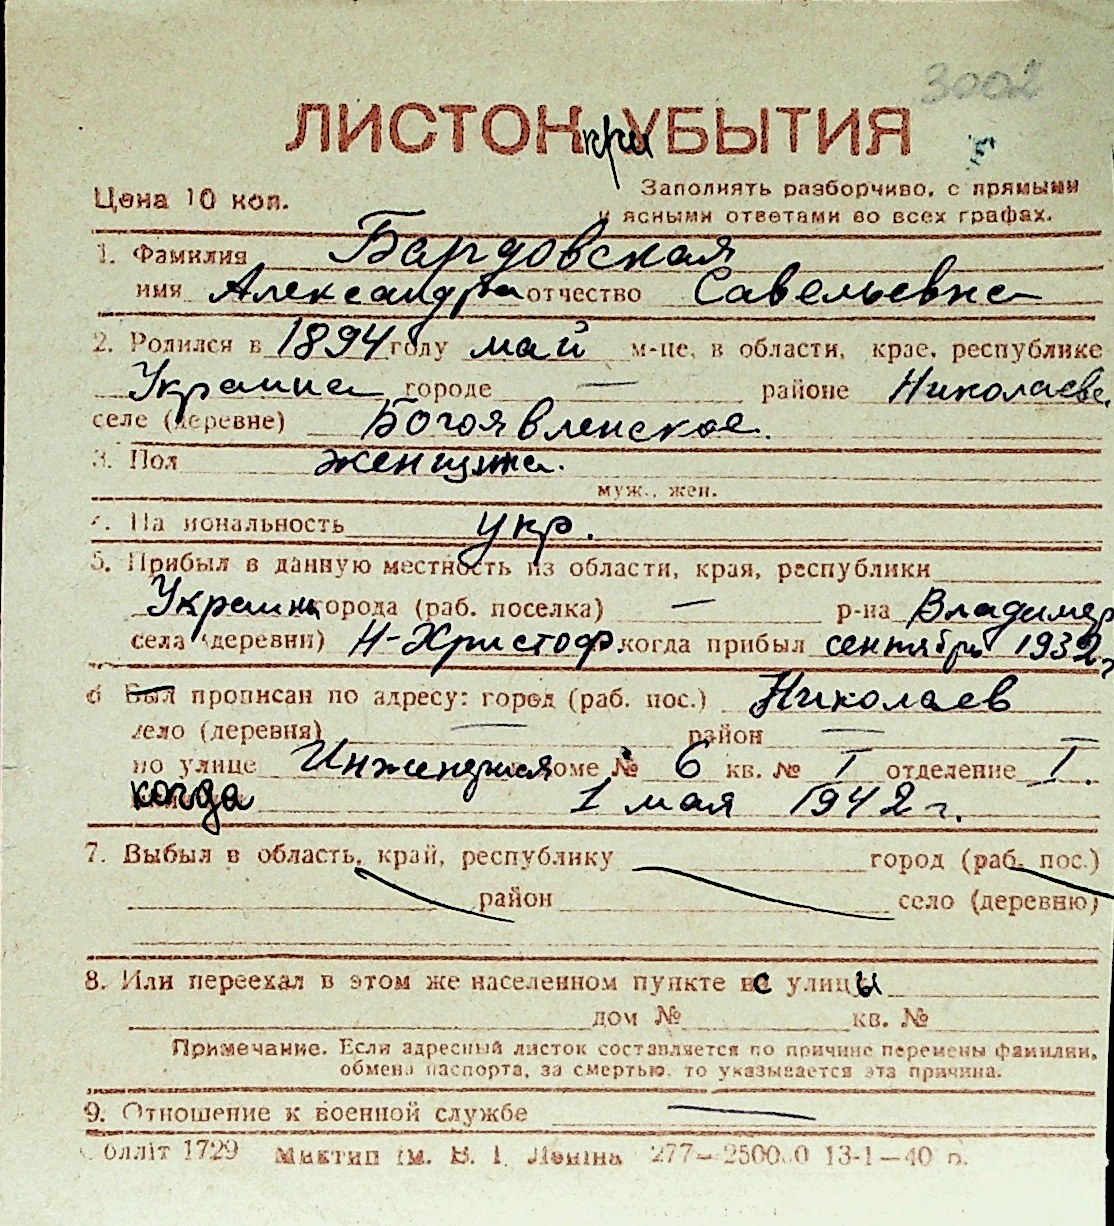 3002
ЛИСТОК при УБЫТИЯ
Цена 10 коп.
Заполнять разборчиво, с прямыми
и ясными ответами во всех графах.
1. Фамилия Бардовская
имя Александра отчество Савельевна
2. Родился в 1894 году май м-це, в области, крае, республике
Украина городе — районе Николаевс.
селе (деревне) Богоявленское.
3. Пол женщина.
муж., жен.
4. Национальность укр.
5. Прибыл в данную местность из области, края, республики
Украина города (раб. поселка) — р-на Владимир
села (деревни) Н-Христоф. когда прибыл сентябрь 1932 г
6 Был прописан по адресу: город (раб. пос.) Николаев
село (деревня) — район —
по улице Инженерная доме № 6 кв. № I отделение I.
когда 1 мая 1942 г.
7. Выбыл в область, край, республику город (раб. пос.)
район село (деревню)
8. Или переехал в этом же населенном пункте с улицы
дом № кв. №
Примечание. Если адресный листок составляется по причине перемены фамилии,
обмена паспорта, за смертью, то указывается эта причина.
9. Отношение к военной службе —
Облліт 1729 Миктип ім. В. І. Леніна 277—250000 13-1—40 р.